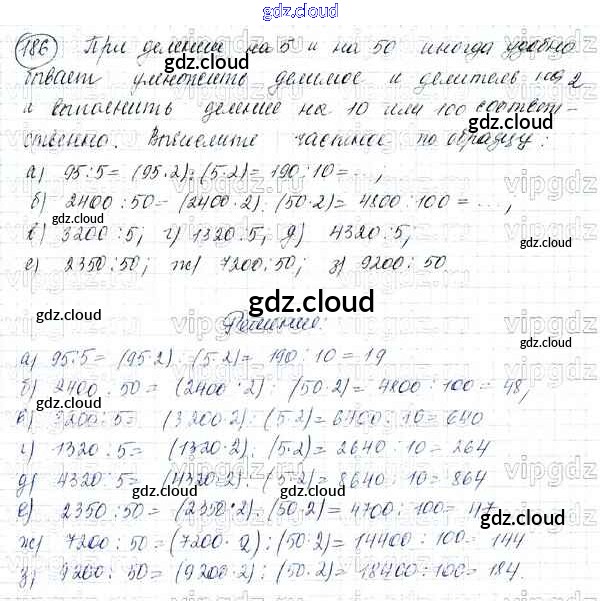 gdz.cloud
186 При делении на 5 и на 50 иногда удобно
бывает умножить делимое и делитель на 2
и выполнить деление на 10 или 100 соответ-
ственно. Вычислите частное по образцу:
а) 95:5= (95·2):(5·2)= 190:10= ...,
б) 2400:50= (2400·2):(50·2)= 4800:100= ...,
в) 3200:5; г) 1320:5; д) 4320:5;
е) 2350:50; ж) 7200:50; з) 9200:50
gdz.cloud
Решение:
а) 95:5= (95·2):(5·2)= 190:10=19
б) 2400:50= (2400·2):(50·2)= 4800:100= 48,
в) 3200:5= (3200·2):(5·2)= 6400:10= 640
г) 1320:5= (1320·2):(5·2)= 2640:10= 264
д) 4320:5= (4320·2):(5·2)= 8640:10= 864
е) 2350:50= (2350·2):(50·2)= 4700:100= 47
ж) 7200:50= (7200·2):(50·2)= 14400:100= 144
з) 9200:50= (9200·2):(50·2)= 18400:100= 184.